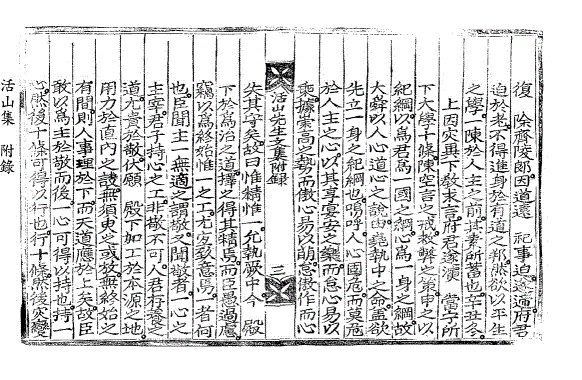 復 陰齋陵郎因道遠 祀事迫遂遞府君
迫於老不得進身於有道之邦然欲以平生
之學一陳於人主之前其素所蓄也辛丑冬
上因灾異下敎求言府君遂演 當宁所
下大學十條陳空言之戒救弊之策申之以
紀綱以爲君爲一國之綱心爲一身之綱故
大舜以人心道心之說由堯執中之命盖欲
先立一身之紀綱也嗚呼人心國危而莫危
於人主之心以其享宴安之樂而怠心易以
乘據崇高之勢而傲心易以萌怠傲作而心
活山先生文集附錄 三
失其守矣故曰惟精惟一允執厥中今 殿
下於爲治之道擇之得其精焉而臣愚過慮
竊以爲終始惟一之工尤宜致意焉一者何
也臣聞主一無適之謂敬又聞敬者一心之
主宰君子持心之工非敬不可人君存養之
道尤貴於敬伏願 殿下加工於本源之地
用力於直內之謨無須臾之或放無終始之
有間則人事理於下而天道應於上矣故臣
敢以爲主於敬而後一心可得以持也持一
心然後十條可得以行也行十條然後灾變
活山集 附錄